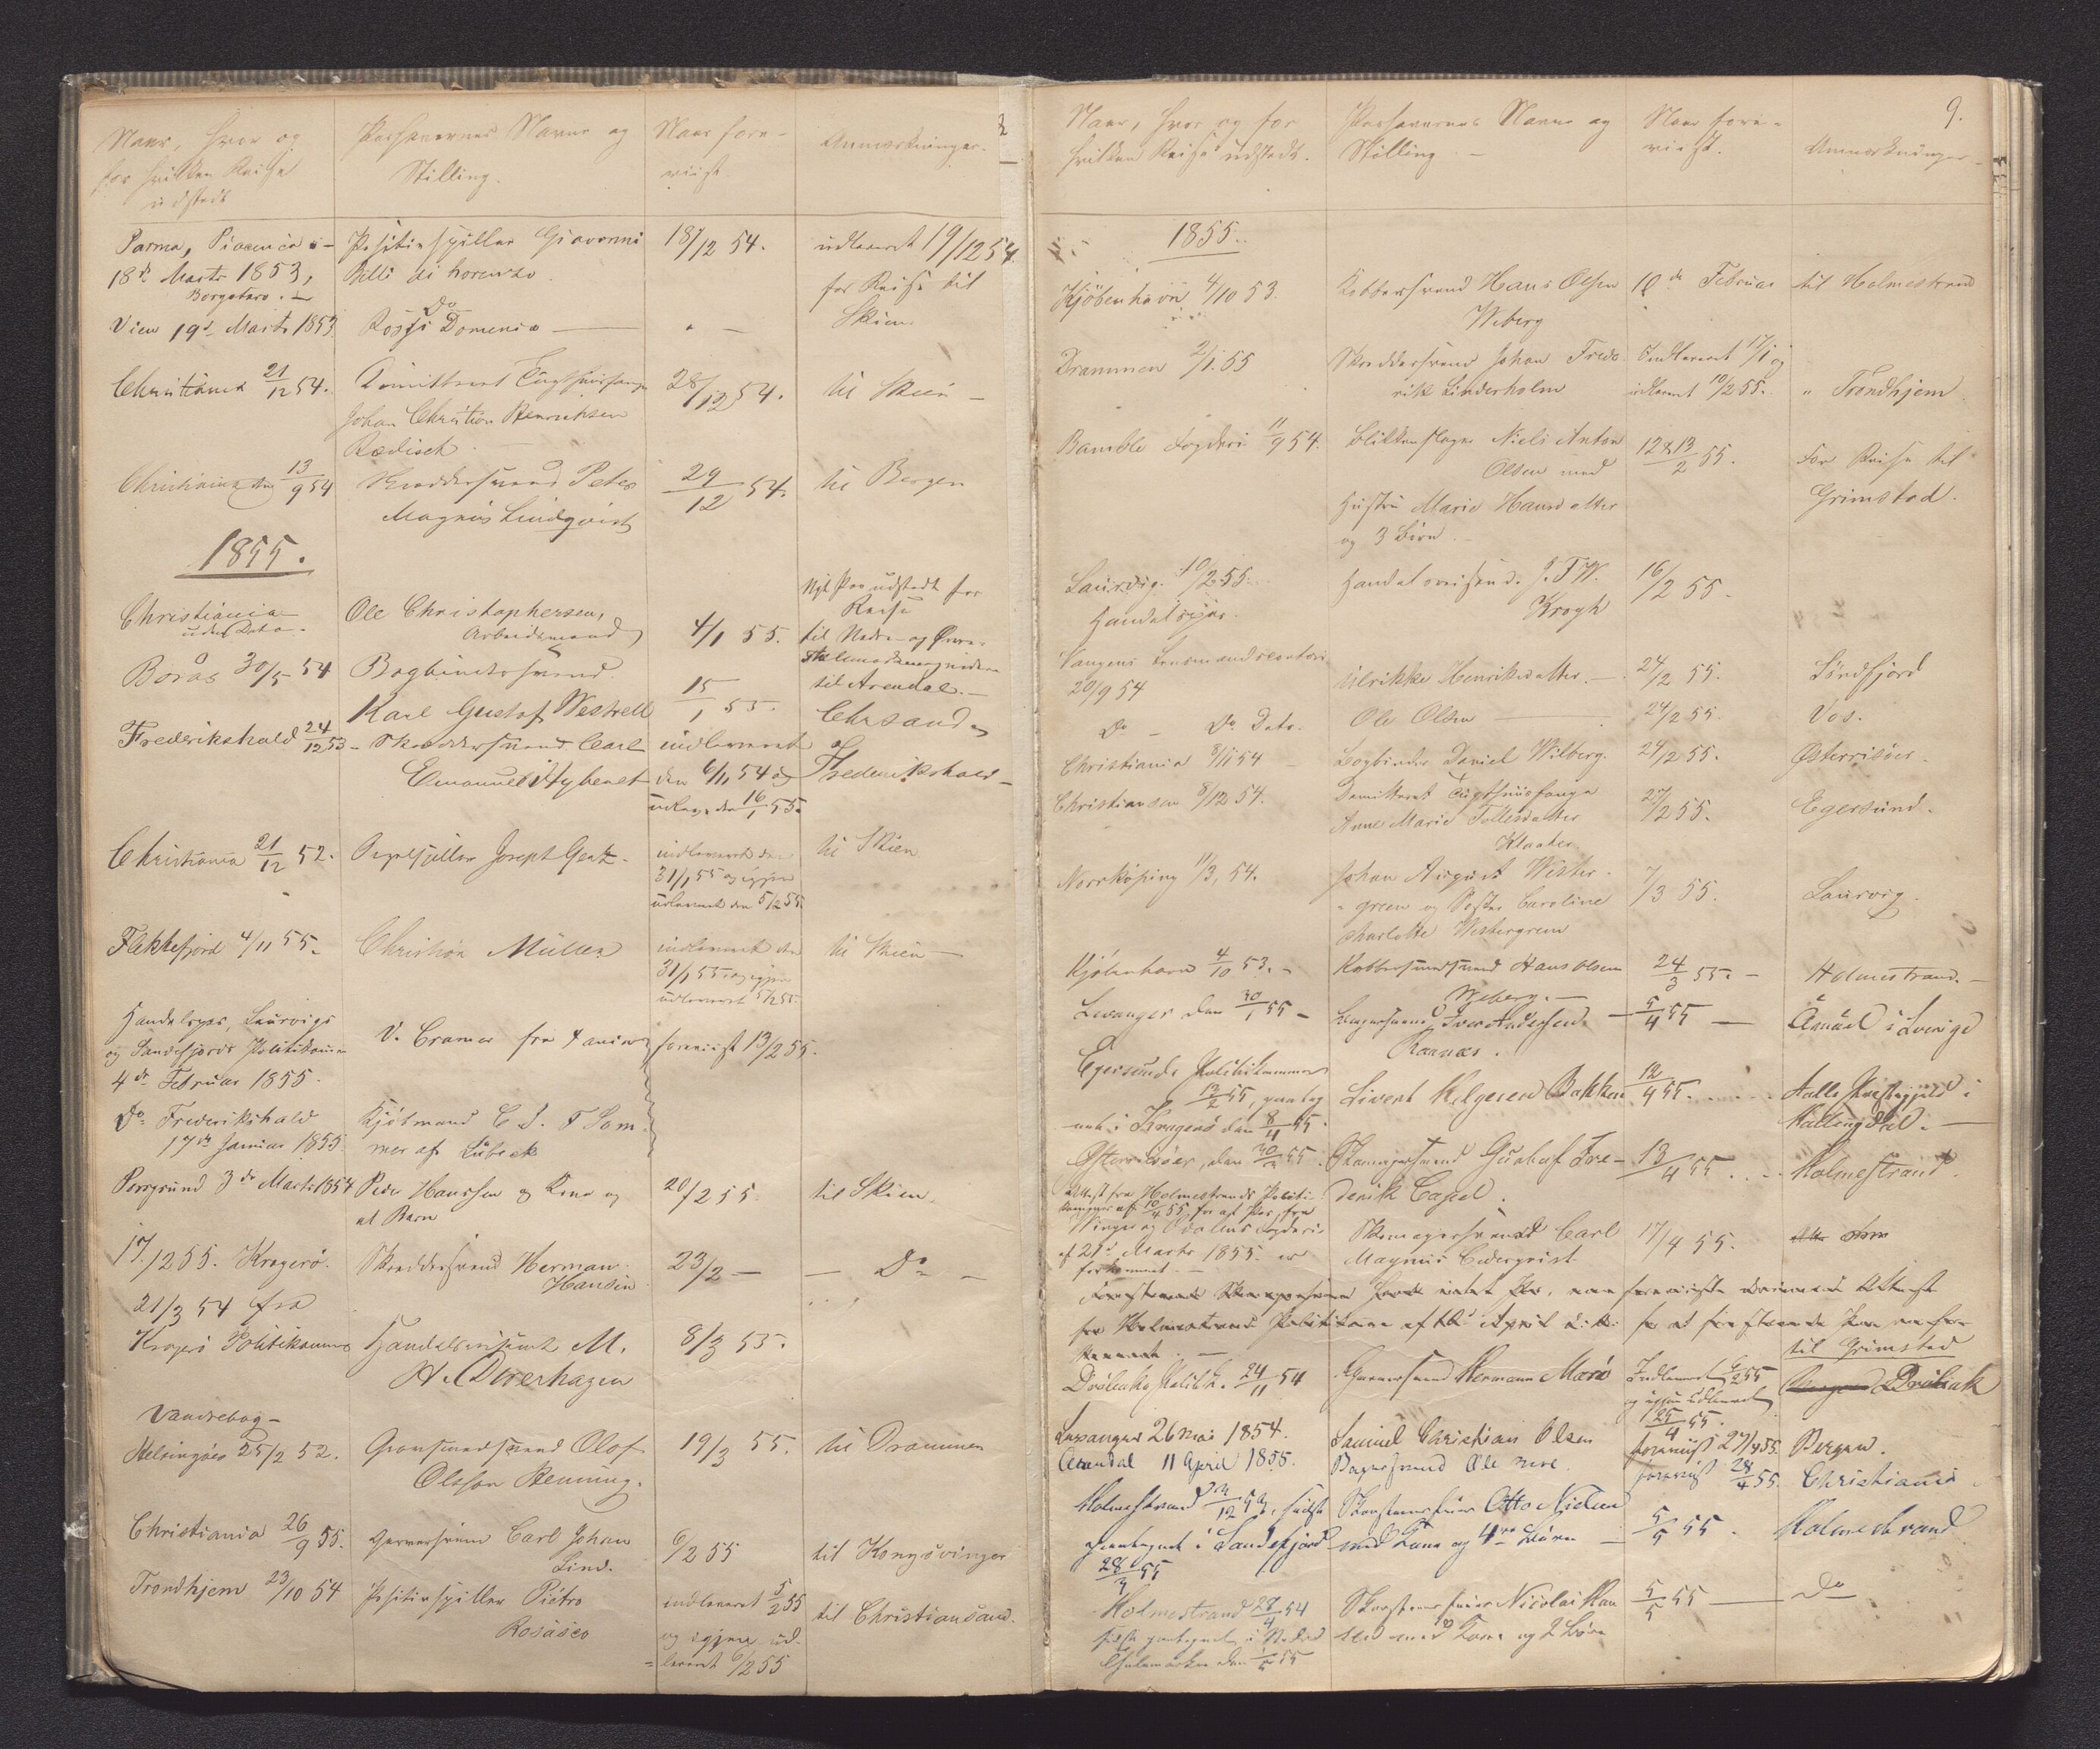 Naar, hvor og
for hvilken Reise
udstedt
Passhavernes Navne og
Stilling.
Naar fore-
viist.
Anmærkninger.
Parma, Piacenica
18de Marts 1853,
Borgotaro.
Positivspiller Giovanni
Belli di Lorenzo
18/12 54.
udleveret 19/12 54
for Reise til
Skien
Wien 19de Marts 1853
Do
Rossi Domenico
Christiania 21/12 54.
Dimitteret Tugthuusfange
Johan Christian Henriksen
Rædisch
28/12 54.
til Skien
Christiania den 13/9 54
Skræddersvend Peter
Magnus Lindqvist
29/12 54.
til Bergen
1855.
Christiania
uden Dato.
Ole Christophersen,
Arbeidsmand
4/1 55.
Nyt Pas udstedt for
Reise
til Nedre- og Øvre-
Borås 30/5 54
Bogbindersvend
Karl Gustof Westrell
15/1 55.
til Arendal.
Frederikshald 24/12 53
Skræddersvend Carl
Emanuel
indleveret
den 6/11 54 og
udlev. den 16/1 55.
Chrsand
og
Frederikshald
Christiania 21/12 52.
Orgelspiller Joseph Gentz.
indleveret den
31/1 55 og igjen
udleveret den 5/2 55.
til Skien
Flekkefjord 4/11 55.
Christian Müller
indleveret den
31/1 55 og igjen
udleveret 5/2 55.
til Skien
Handelspas, Laurvigs
og Sandefjords Politikam
4de Februar 1855.
V. Cramer fra
foreviist 13/2 55.
Do Frederikshald
17de Januar 1855.
Kjøbmand C. J. F Som
mer af Lübeck
Porsgrund 3de Marts 1854
Peder Hanssen og Kone og
et Barn
20/2 55.
til Skien.
17/1 255. Kragerö.
Skræddersvend Herman
Hansen
23/2
Do
21/3 54 fra
Kragerö Politikammer
Handelsreisende M.
H. Dorerhagen
8/3 55.
Vandrebog
Helsingör 25/2 52.
Olof
Olsson Henning.
19/3 55.
til Drammen
Christiania 26/9 55.
Garversvend Carl Johan
Lind.
6/2 55
til Kongsvinger
Trondhjem 23/10 54
Positivspiller Pietro
Rosasco
indleveret 5/2 55
og igjen ud-
leveret 6/2 55
til Christiansand.
9.
Naar, hvor og for
hvilken Reise udstedt.
Passhavernes Navne og
Stilling.
Naar fore-
viist.
Anmærkninger
1855.
Kjöbenhavn 4/10 53.
Kobbersvend Hans Olsen
Weberg
10de Februar
til Holmestrand
Drammen 2/1. 55
Skræddersvend Johan Frede
rik Linderholm
Indleveret 17/1 og
udleveret 10/2 55.
" Trondhjem
Bamble Fogderi 11/9 54.
Blikkenslager Niels Anton
Olsen med
Hustru Marie Hansdatter
og 3 Börn.
12 & 13/2 55.
For Reise til
Grimstad.
Laurvig. 10/2 55.
Handelspas.
Handelsreisende J. F W.
Krogh
16/2 55.
Vangens Lensmandscontoir
20/9 54
Ulrikke Henriksdatter.
24/2 55.
Söndfjord
Do Do Dato.
Ole Olsen
24/2 55.
Vos.
Christiania 8/11 54
Bogbinder Daniel Wilberg.
24/2 55.
Østerrisöer.
Christiansen 8/12 54.
Dimitteret Tugthuusfange
Anne Marie Tollefsdatter
27/2 55.
Egersund.
Norrköping 11/3, 54.
Johan August Wester-
green og Søster Caroline
Charlotte Westergreen
7/3 55.
Laurvig.
Kjöbenhavn 4/10 53.
Kobbersmedsvend Hans Olsen
Weberg.
24/3 55.
Holmestrand.
Levanger den 30/1 55
Iver Andersen
Raanæs.
5/4 55
i Sverige
Egersunds Politikammer
12/2 55, paateg
net i Kragerö den 8/4 55.
Sivert Helgesen Bakken
12/4 55.
Aalls Præstegjeld i
Hallingdal.
Østerrisöer, den 30/3 55.
Skomagersvend Gustaf Fre-
derik Capel.
13/4 55.
Holmestrand.
Attest fra Holmestrands Politi-
kammer af 10/4 55 for at Pas fra
Winger og Odalens Fogderi
af 21de Marts 1855. er
forkommet.
Skomagersvend Carl
Magnus Cederqvist
17/4 55.
Dröbaks Politik. 24/11 54
Garversvend Hermann Maró
Indleveret 6/2 55
og igjen udleveret
25/4 55.
til Grimstad
Dröbak
Levanger 26 Mai 1854.
Samuel Christian Olsen
foreviist 27/4 55.
Bergen.
Arendal 11 April 1855.
Bagersvend Ole
foreviist 28/4 55.
Christiania
Holmestrand
paategnet i Sandefjord
28/4 55
Skorsteensfeier Otto Nielsen
med Kone og 4re Börn
5/5 55.
Holmestrand
Holmestrand 28/4 54
sidst paategnet i Nedre
Thelemarken den 1/5 55
Skorsteensfeier Nicolai Han
sen med Kone og 2 Börn
5/5 55
Do